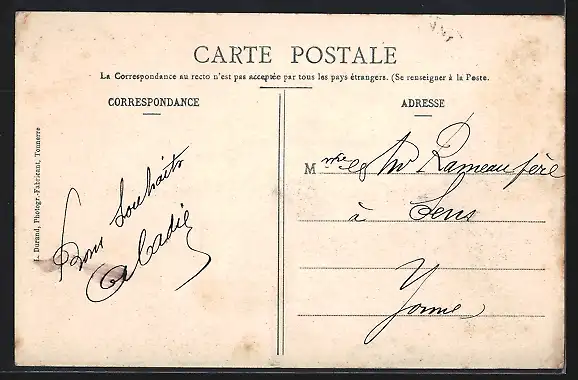 CARTE POSTALE
La Correspondance au recto n'est pas acceptée par tous les pays étrangers. (Se renseigner à la Poste.
CORRESPONDANCE
ADRESSE
L. Durand, Photogr.-Fabricant, Tonnerre
Bons Souhaits
Abadie
Mme et Mr Rameau père
à Sens
Yonne